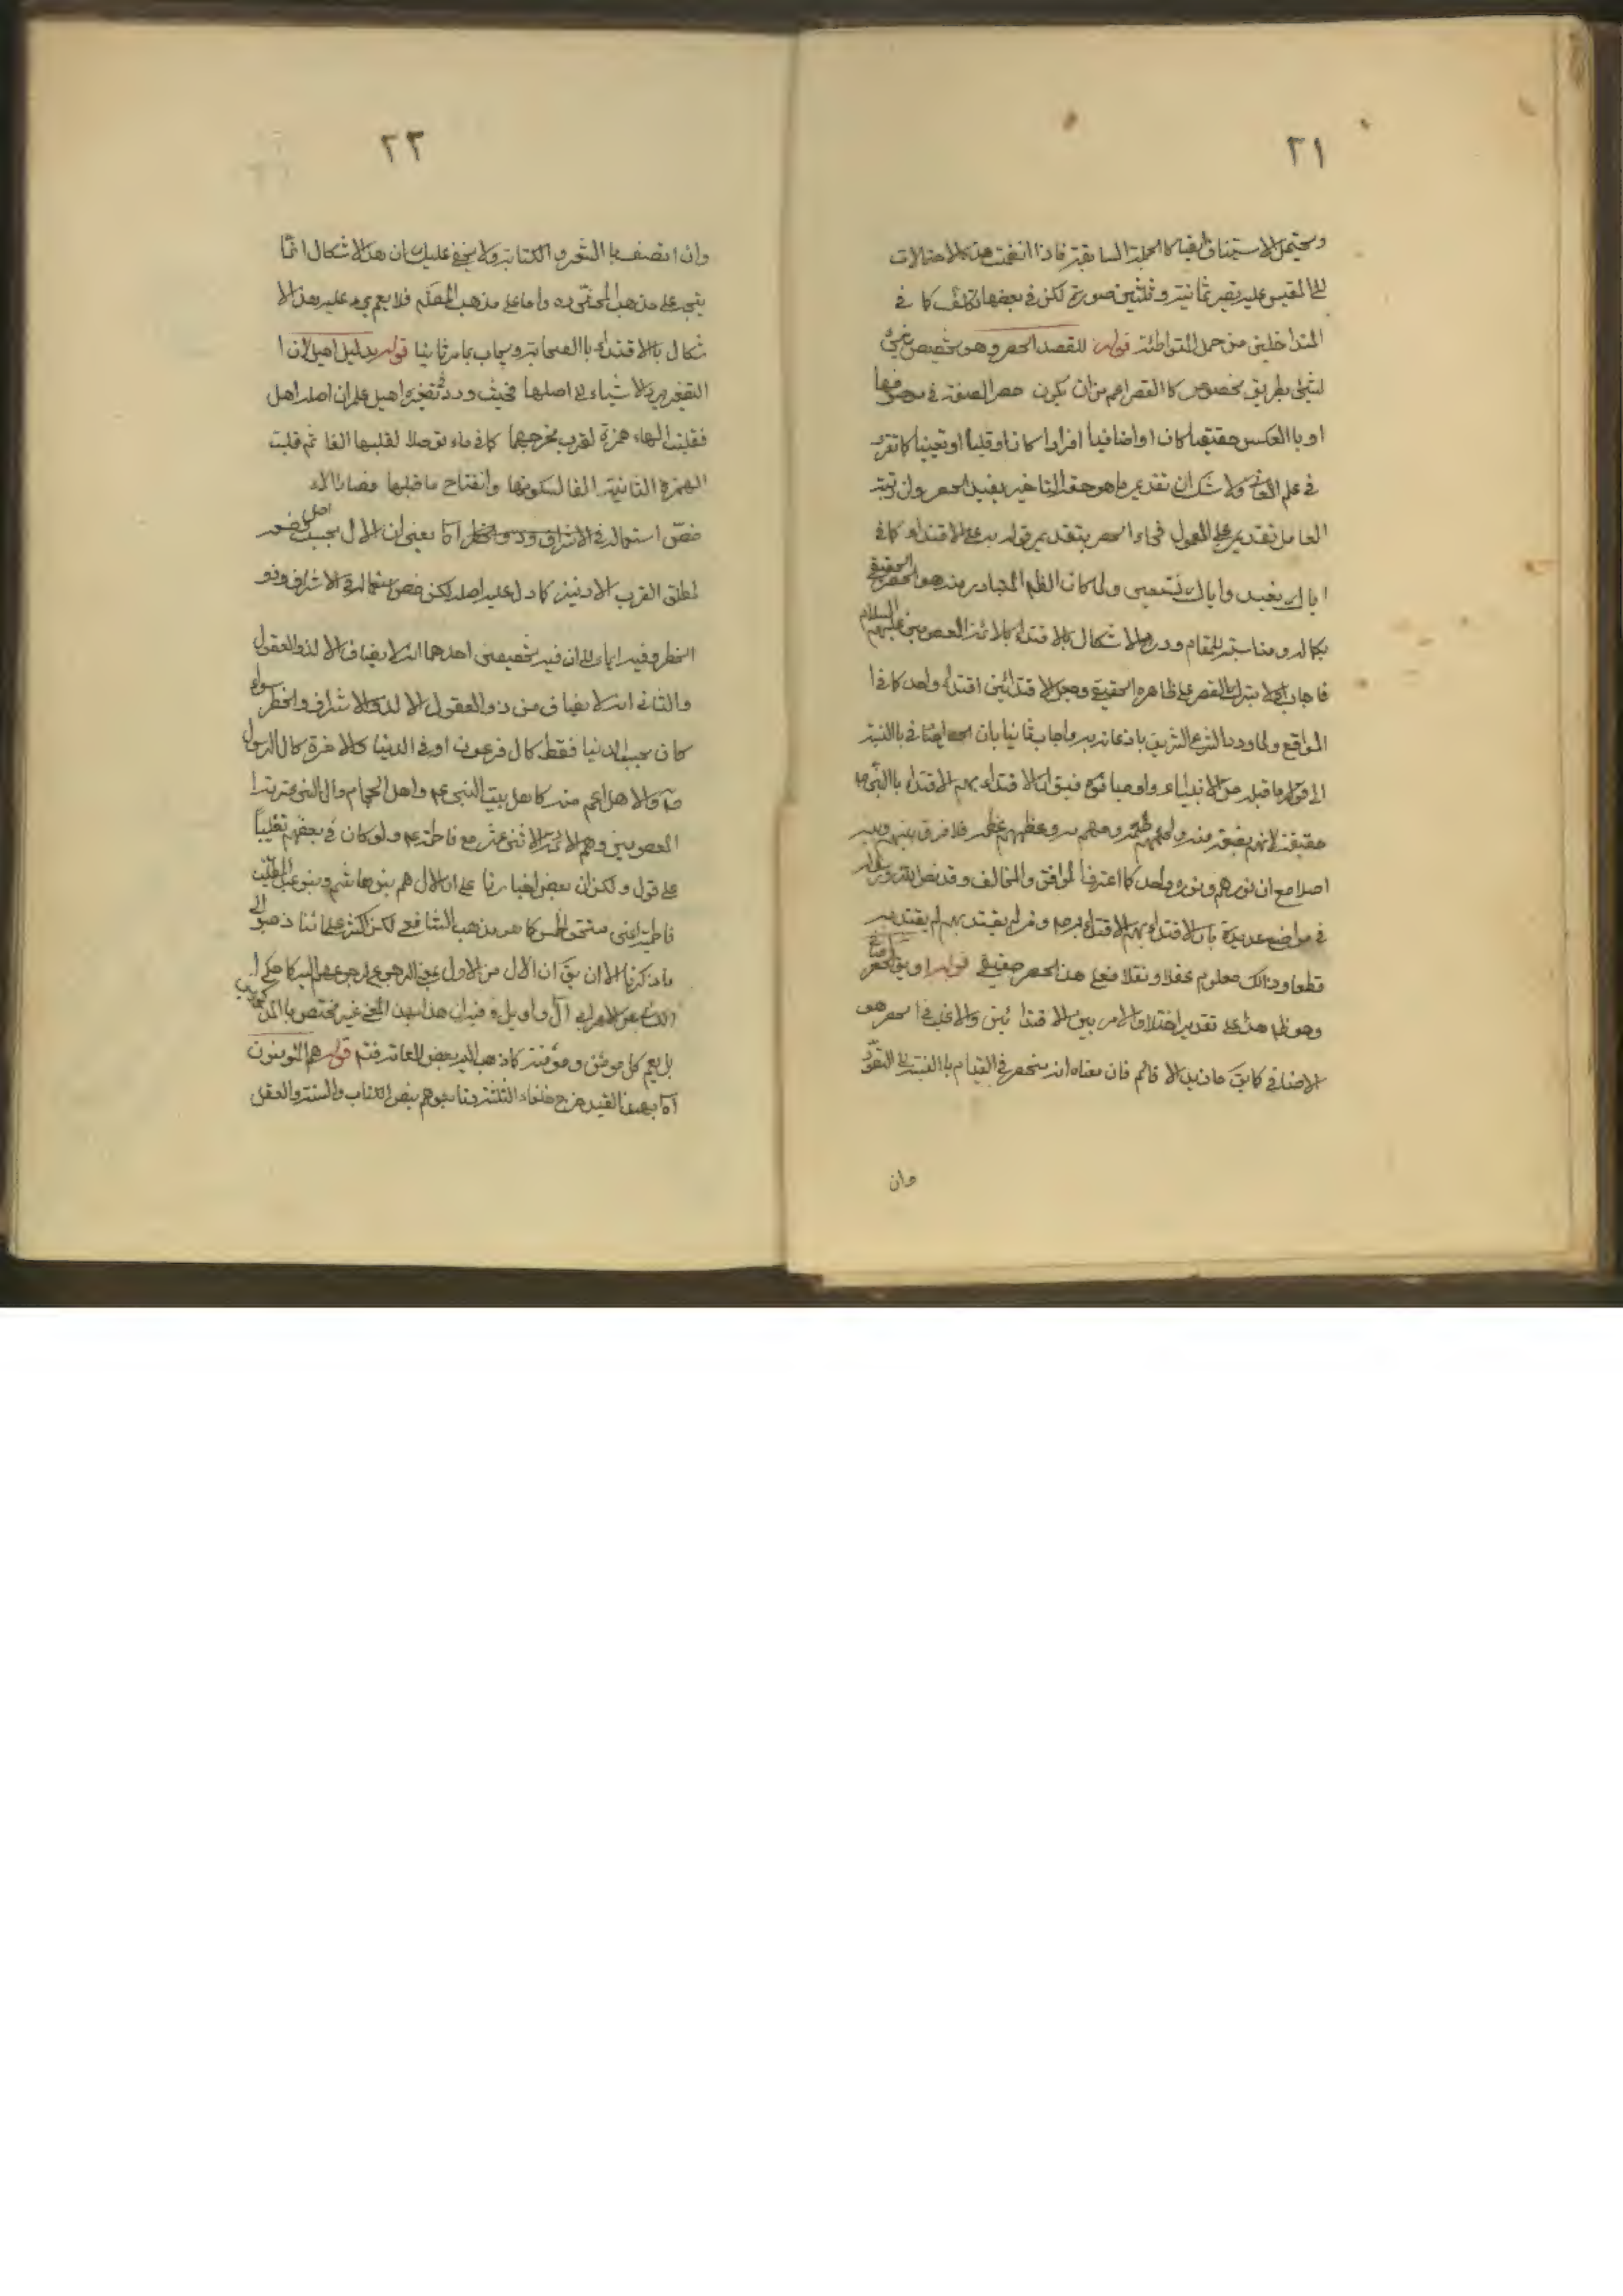 ٢١
ويحتمل الاستيناف ايضا كالجملة السابقة فاذا انضمت هذه الاحتمالات
الى المقيس عليه يصير ثمانية وثلثين صورة لكن في بعضها تكلف كما في
المتداخلين من حمل المتواطئة قوله للقصد الحصر وهو تخصيص شيئ
لشيئ بطريق مخصوص كالقصر اعم من ان يكون حصر الصفة في موصوفها
او باالعكس حقيقيا كان او اضافيا افرادا كان او قلبا او تعيينا كما تقرر
في علم المعاني ولا شك ان تقديم ما هو حقه التاخير يفيد الحصر وان رتبة
العامل تقديم على المعمول فجاء الحصر بتقديم قوله به على الاقتداء كما في
اياك نعبد واياك نستعين ولما كان الظم المتبادر منه هو الحصر الحقيقي
بكماله ومناسبته للمقام وورد الاشكال بالاقتداء بالائمة المعصومين عليهم السلام
فاجاب اولا بترك القصر على ظاهره الحقيقي وجعل الاقتدائين اقتداء واحد كما في ا
المواقع ولما ورد الشرع الشريف باذعانه به واجاب ثانيا بان اضافي باالنسبة
الى ما قبله من الانبياء واوصيائهم فيق ان الاقتداء بهم الاقتداء باالنبي ص
حقيقة لانهم بضعة منه ولحمهم لحمه ودمهم دمه وعظمهم عظمه فلا فرق بينهم وبينه
اصلا مع ان نورهم ونوره واحد كما اعترف الموافق والمخالف وقد نص الله ورسوله
في مواضع عديدة بان الاقتداء بهم الاقتداء به ص ومن لم يقتد بهم لم يقتد به
قطعا وذالك معلوم عقلا ونقلا فعلى هذا الحصر حقيقي قوله او يق الحصر اضافي
وهو ظم هذا على تقدير اختلاف الامر بين الاقتدائين والاغلب في الحصر هو
الاضافي كما يق ما زيد الا قائم فان معناه انه منحصر في القيام باالنسبة الى القعود
وان
٢٢
وان اتصف باالشعر و الكتابة ولا يخفى عليك ان هذ الاشكال انما
يتجه على مذهب المحشي ره واما على مذهب المص فلا يعم يرد عليه هذ الا
شكال باالاقتداء باالصحابة ويجاب بما مر ثانيا قوله بدليل اهيل لان ا
التصغير يرد الاشياء الى اصلها فحيث ورد تصغيره اهيل علم ان اصله اهل
فقلبت الهاء همزة لقرب مخرجهما كما في ماء توصلا لقلبها الفا ثم قلبت
الهمزة الثانية الفا لسكونها وانفتاح ما قبلها فصار الاء
خص استعماله في الاشراف وذو الخطر آه يعني ان الال بحسب اصل وضعه
لمطلق القرب الادنين كما دل عليه اصله لكن خص استعماله في الاشراف وذو
الخطر وفيه ايماء الى ان فيه تخصيصين احدهما انه لا يضاف الا لذو العقول
والثاني انه لا يضاف من ذو العقول الا لذو الاشراف والخطر سواء
كان بحسب الدنيا فقط كال فرعون او في الدنيا والاخرة كال الرسول
ص والاهل اعم منه كاهل بيت النبي ع واهل الحجام وال النبي عترته ا
المعصومين وهم الائمة الاثنى عشر مع فاطمة ع ولو كان في بعضهم تغليبا
على قول ولكن ان بعض اخبارنا على ان الال هم بنو هاشم وبنو عبد المطلب
فاطمة اعنى مستحق الخمس كما هو مذهب الشافعي لكن اكثر علمائنا ذهبوا الى
ما ذكرنا الا ان يق ان الال من الاول بمعنى الرجوع لرجوعهم اليه كما حكى ا
عن الاعرابي آل واويل وفيه ان هذا بهذا المعنى غير مختص باالمذكورين
بل يعم كل مومن ومومنة كما ذهب اليه بعض العامة فتم قوله هم المومنون
آه بهذا القيد خرج خلفاء الثلثة ومتابعوهم بنص الكتاب والسنة والعقل